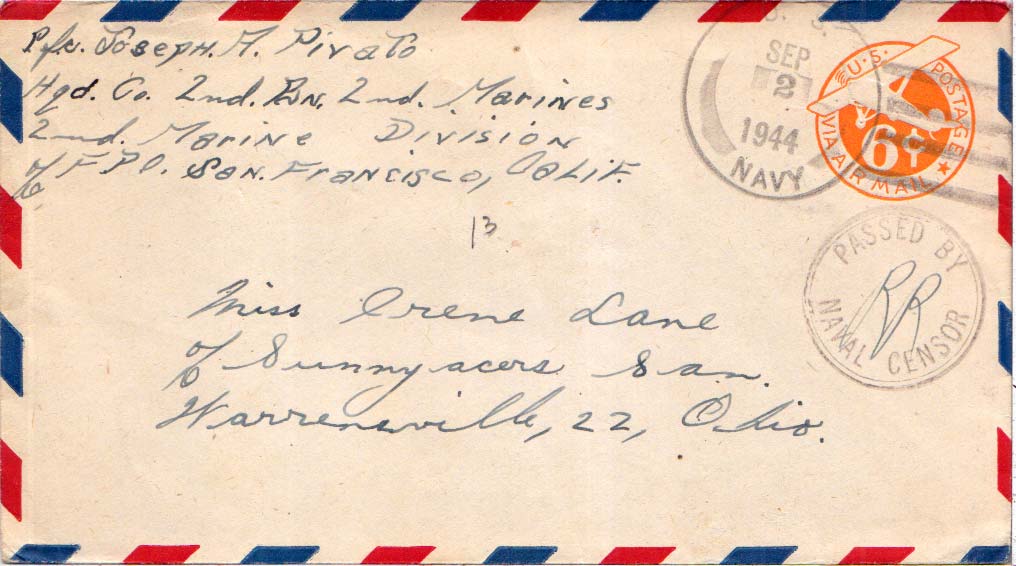 Pfc. Joseph. M. Pivato
Hqd. Co. 2nd. Bn. 2nd. Marines
2nd. Marine Division
c/o F.P.O. San. Francisco, Calif.
U. S.
SEP
2
1944
NAVY
U.S. POSTAGE
6¢
VIA AIR MAIL
13
PASSED BY
RR
NAVAL CENSOR
Miss Irene Lane
c/o Sunnyacers San.
Warrensville, 22, Ohio.